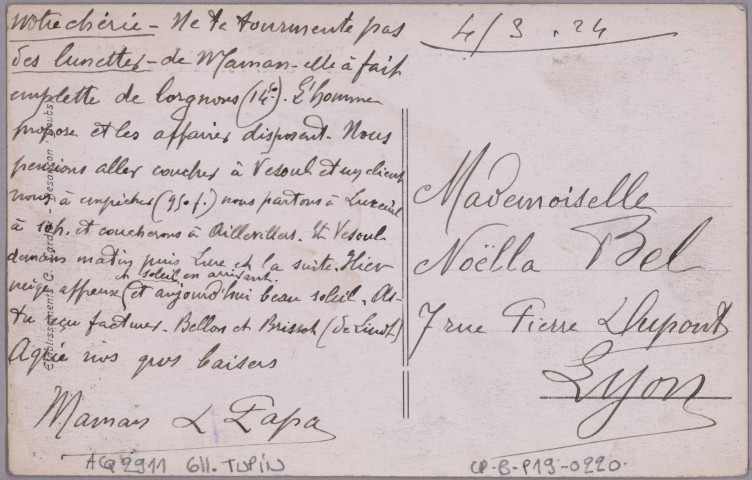 Notre chérie - Ne te tourmente pas
des lunettes - de Maman - elle à fait
emplette de lorgnons (14.50). L'homme
propose et les affaires disposent. Nous
pensions aller coucher à Vesoul et un client
nous à empêcher (950 f.) nous partons à Luxeuil
à 10h. et coucherons à Aillevillers. Et Vesoul
demain matin puis Lure et la suite. Hier
et soleil en arrivant.
neige affreux et aujourd'hui beau soleil. As-
tu reçu factures - Bellos et Brissot (de Linot)
Agrée nos gros baisers
Maman & Papa
4/3.24
Mademoiselle
Noëlla Bel
7 rue Pierre Dupont
Lyon
Etablissements C. Lardier - Besançon (Doubs)
AcQ 2911 Gll. TUPIN
CP-B-P19-0220.